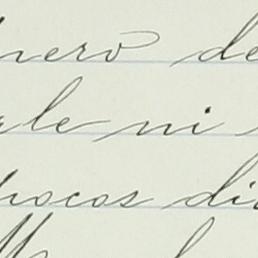 nero de
le ni
pocos di